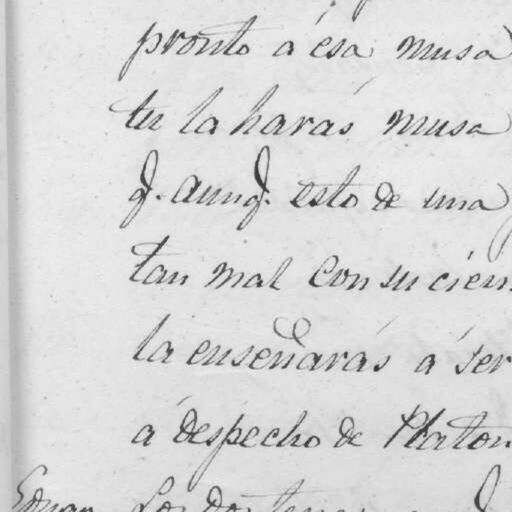 pronto á ésa musa
tu la harás musa
q. aunq. esto de una
tan mal con su cien
la enseñarás á ser
á despecho de Platon
Los dos